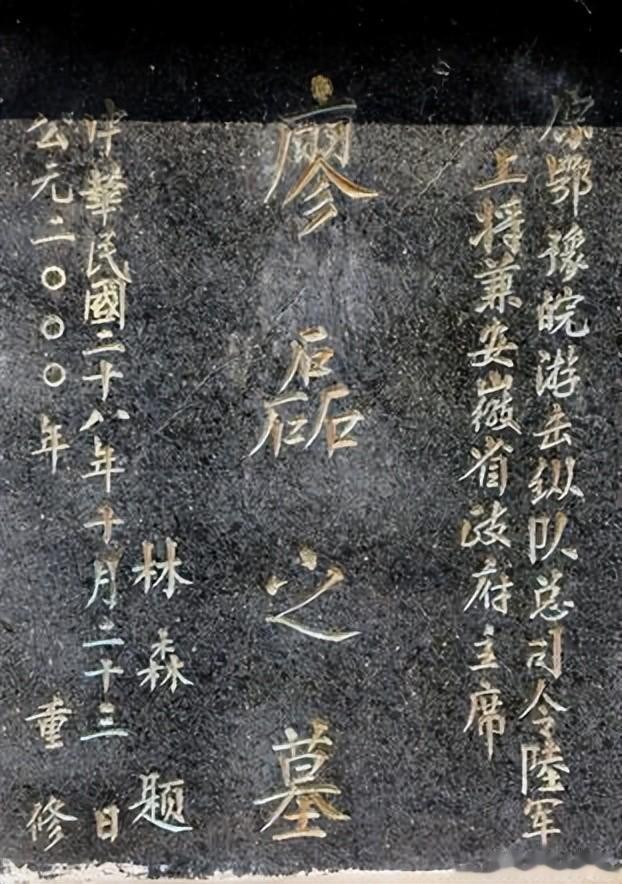 原鄂豫皖游击纵队总司令陸军
上将兼安徽省政府主席
廖磊之墓
林森题
中華民國二十八年十月二十三日
公元二〇〇〇年重修